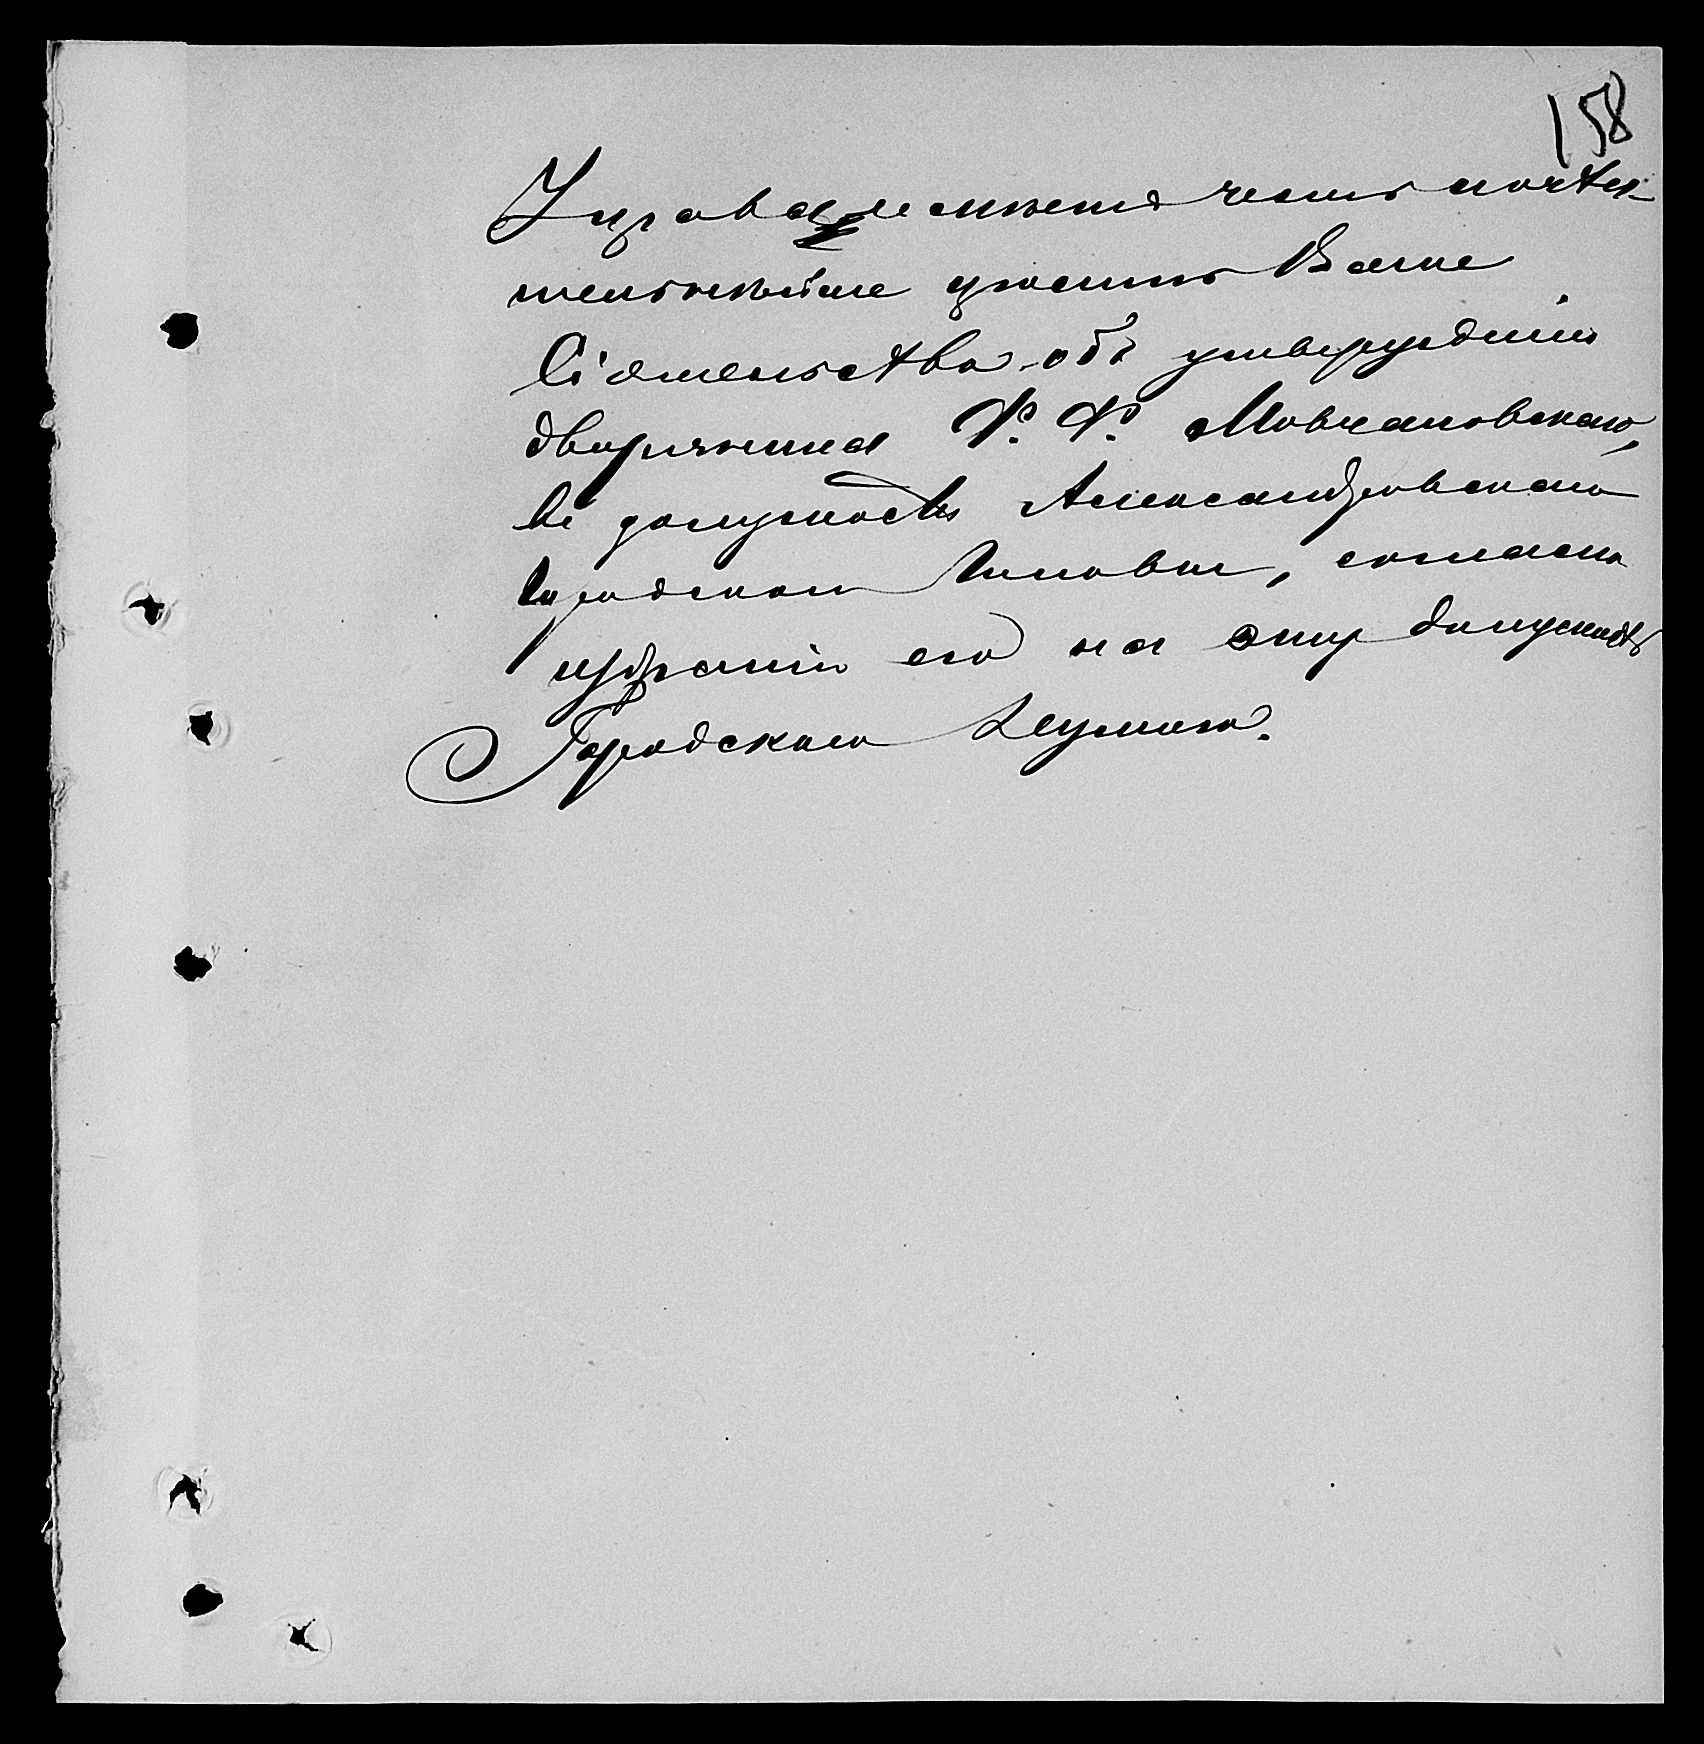 158
Управа имѣетъ честь почти-
тельнѣйше просить Ваше
Сіятельство объ утвержденіи
дворянина Ф. Ф. Мовчановскаго,
въ должности Александровскаго
Городского Головы, согласно
избранія его на эту должность
Городскою Думою.